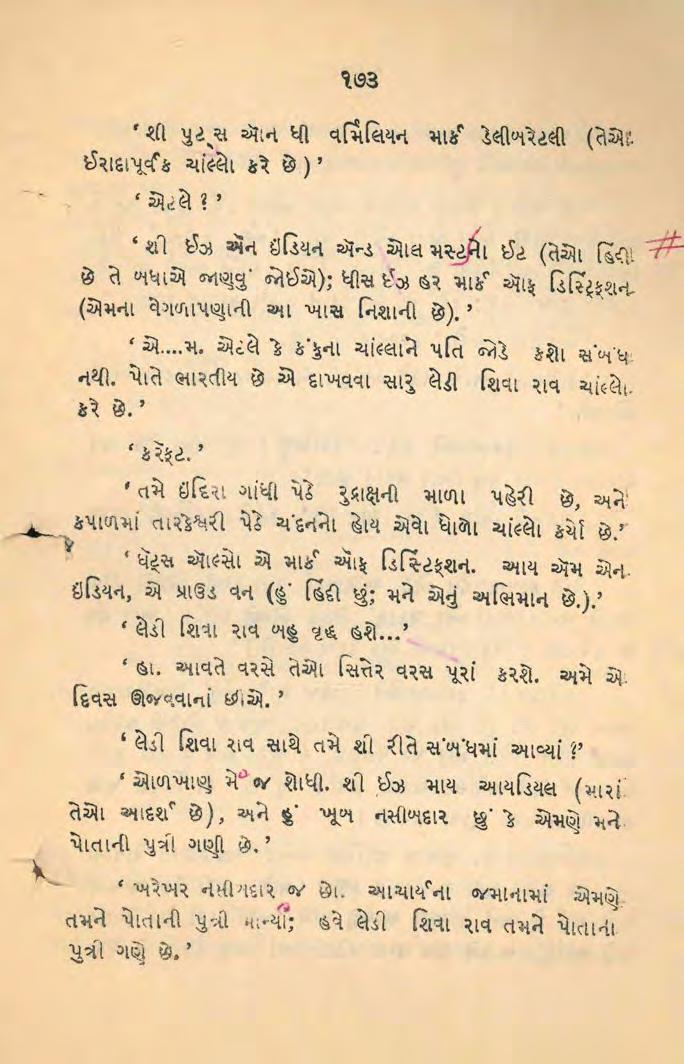 ૧૭૩
‘ શી પુટ્સ ઑન ધી વર્મિલિયન માર્ક ડેલીબરેટલી (તેઓ
ઈરાદાપૂર્વક ચાંલ્લો કરે છે ) ’
‘ એટલે ? ’
‘ શી ઈઝ ઍન ઇંડિયન ઍન્ડ ઓલ મસ્ટનો ઈટ (તેઓ હિંદી #
છે તે બધાએ જાણવું જોઈએ); ધીસ ઈઝ હર માર્ક ઑફ ડિસ્ટ્રિંક્શન
(એમના વેગળાપણાની આ ખાસ નિશાની છે). ’
‘ એ....મ. એટલે કે કંકુના ચાંલ્લાને પતિ જોડે કશો સંબંધ
નથી. પોતે ભારતીય છે એ દાખવવા સારુ લેડી શિવા રાવ ચાંલ્લો
કરે છે. ’
‘ કરૅક્ટ. ’
‘ તમે ઇંદિરા ગાંધી પેઠે રુદ્રાક્ષની માળા પહેરી છે, અને
કપાળમાં તારકેશ્વરી પેઠે ચંદનનો હોય એવો ધોળો ચાંલ્લો કર્યો છે.’
‘ ધૅટ્સ ઑલ્સો એ માર્ક ઑફ ડિસ્ટિંક્શન. આય ઍમ એન
ઇંડિયન, એ પ્રાઉડ વન (હું હિંદી છું; મને એનું અભિમાન છે.).’
‘ લેડી શિવા રાવ બહુ વૃદ્ધ હશે...’
‘ હા. આવતે વરસે તેઓ સિત્તેર વરસ પૂરાં કરશે. અમે એ
દિવસ ઊજવવાનાં છીએ. ’
‘ લેડી શિવા રાવ સાથે તમે શી રીતે સંબંધમાં આવ્યાં ?’
‘ ઓળખાણ મે જ શોધી. શી ઈઝ માય આયડિયલ (મારાં
તેઓ આદર્શ છે), અને હું ખૂબ નસીબદાર છું કે એમણે મને
પોતાની પુત્રી ગણી છે. ’
‘ ખરેખર નસીબદાર જ છો. આચાર્યના જમાનામાં એમણે
તમને પોતાની પુત્રી માન્યાં; હવે લેડી શિવા રાવ તમને પોતાની
પુત્રી ગણે છે. ’